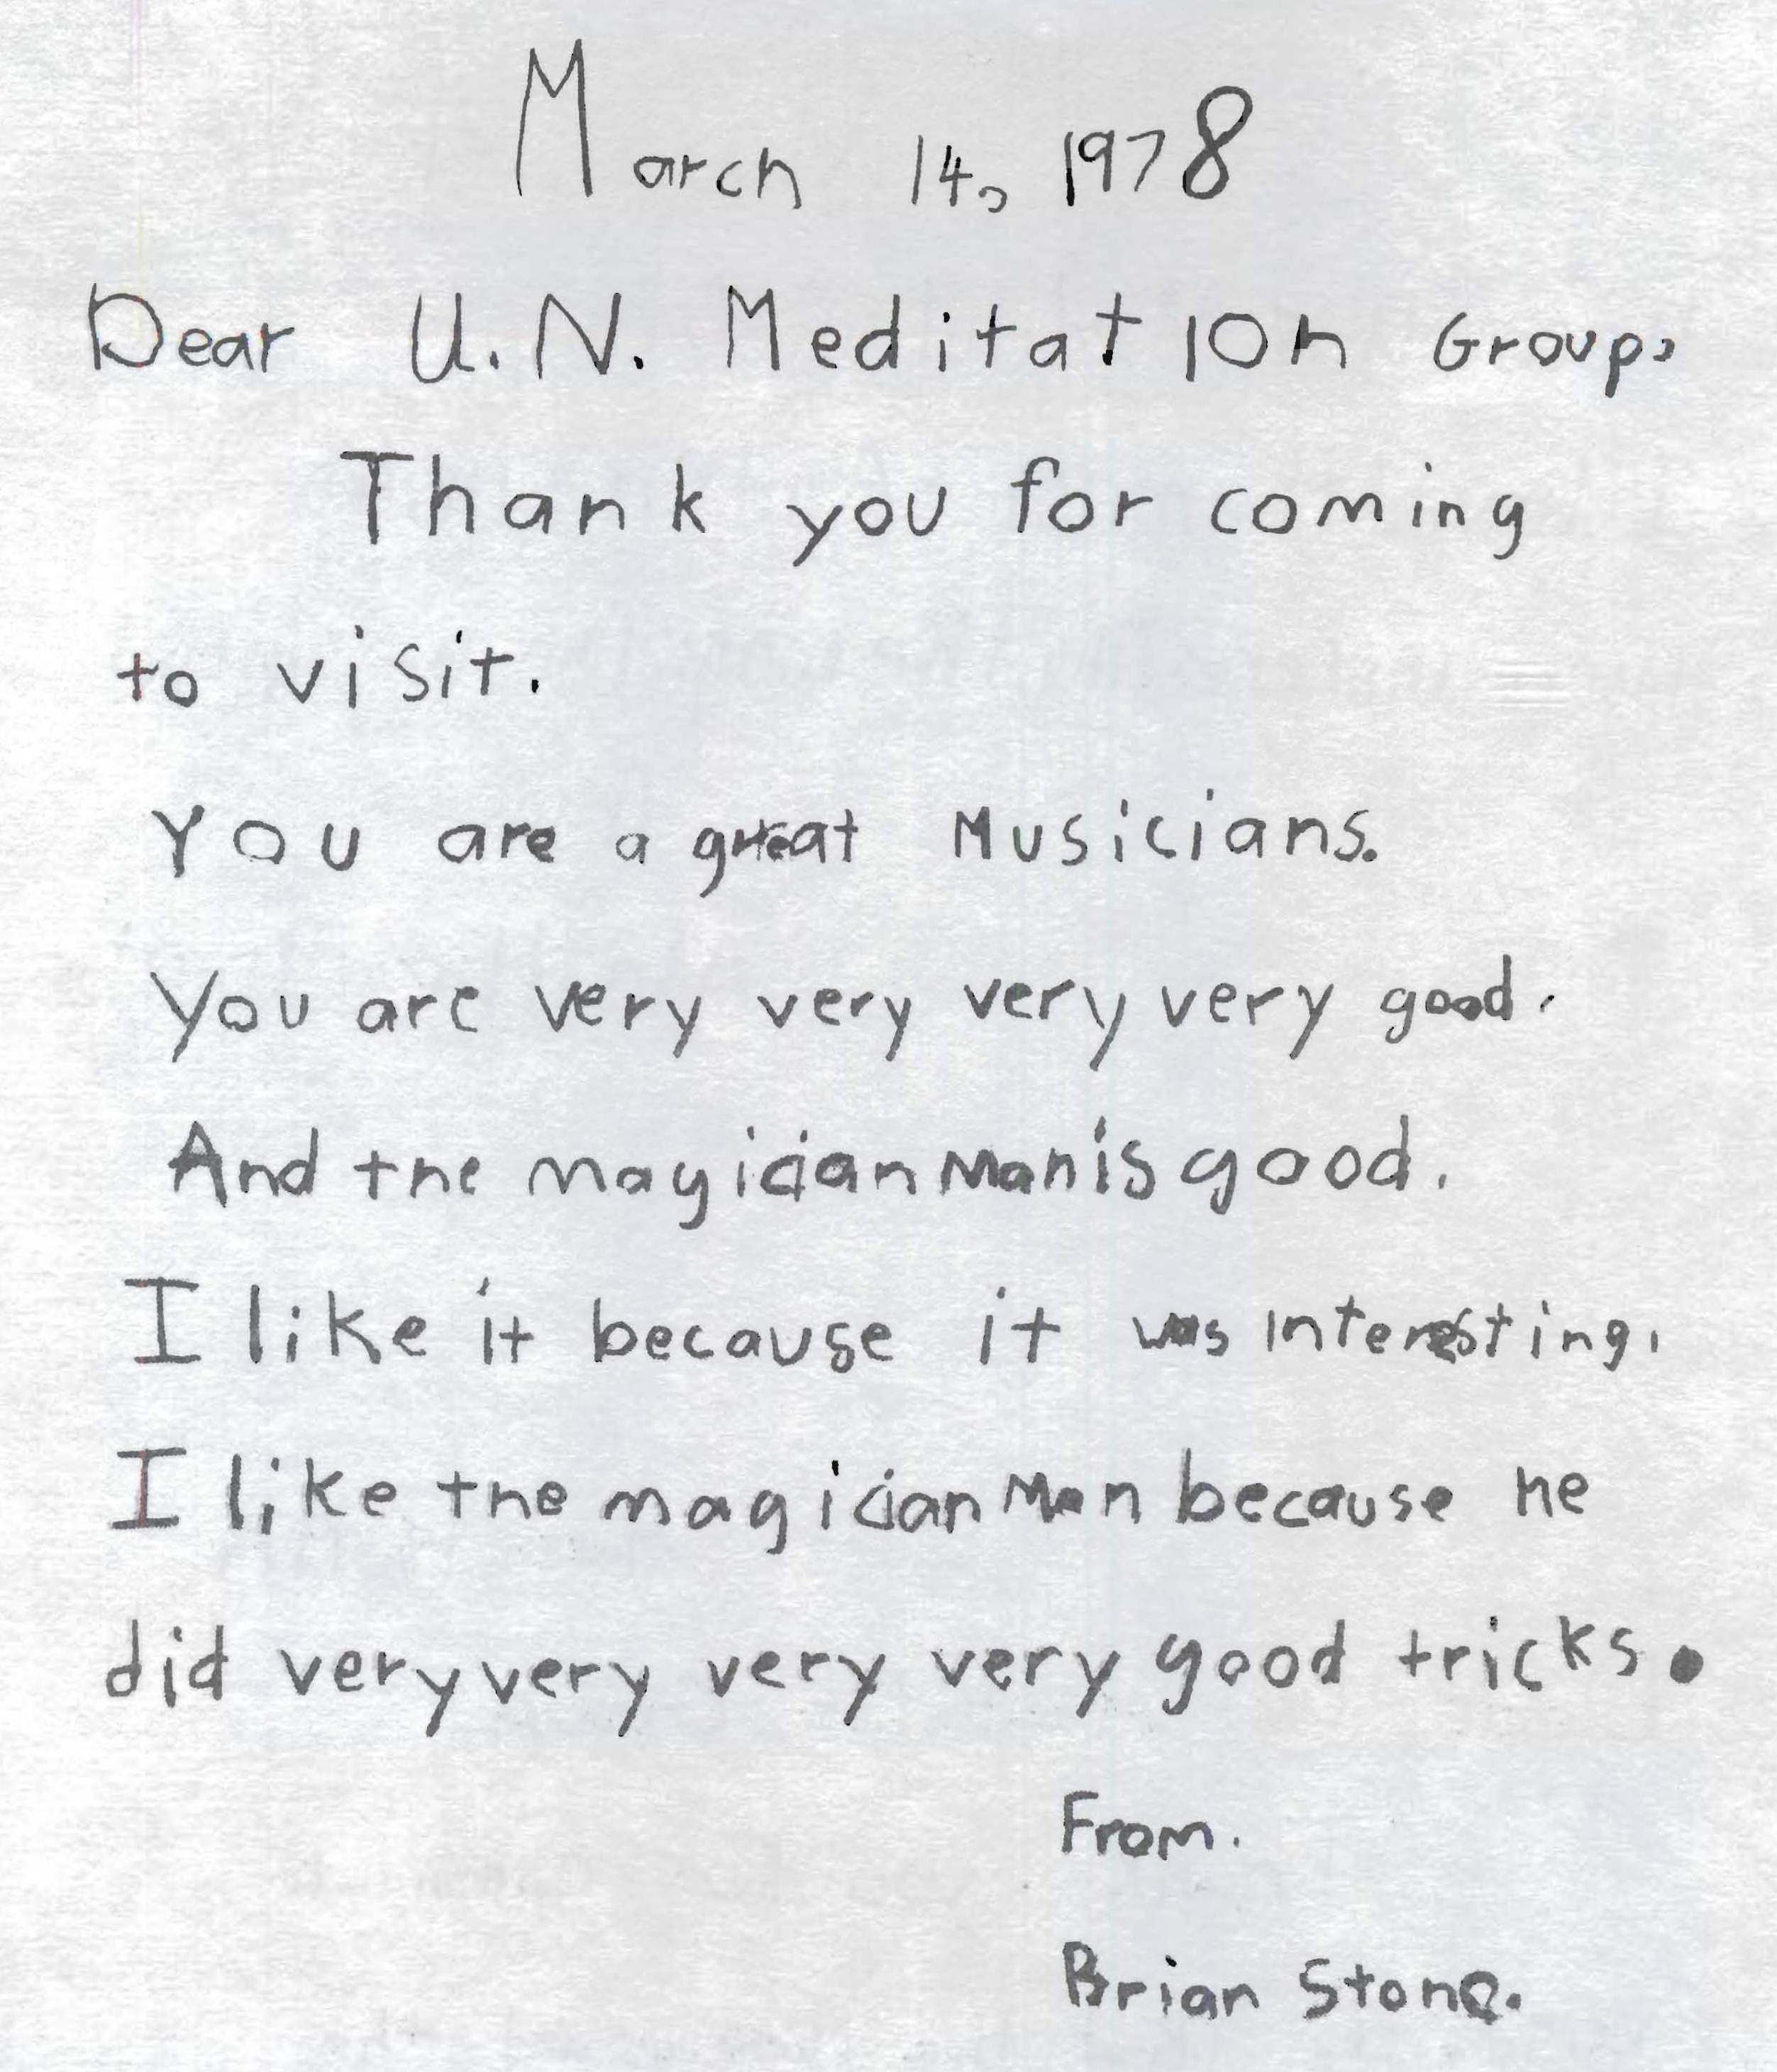 March 14, 1978
Dear U.N. Meditation Group,
Thank you for coming
to visit.
You are a great Musicians.
You are very very very very good.
And the magician Man is good.
I like it because it was interesting.
I like the magician Man because he
did very very very very good tricks.
From.
Brian Stone.